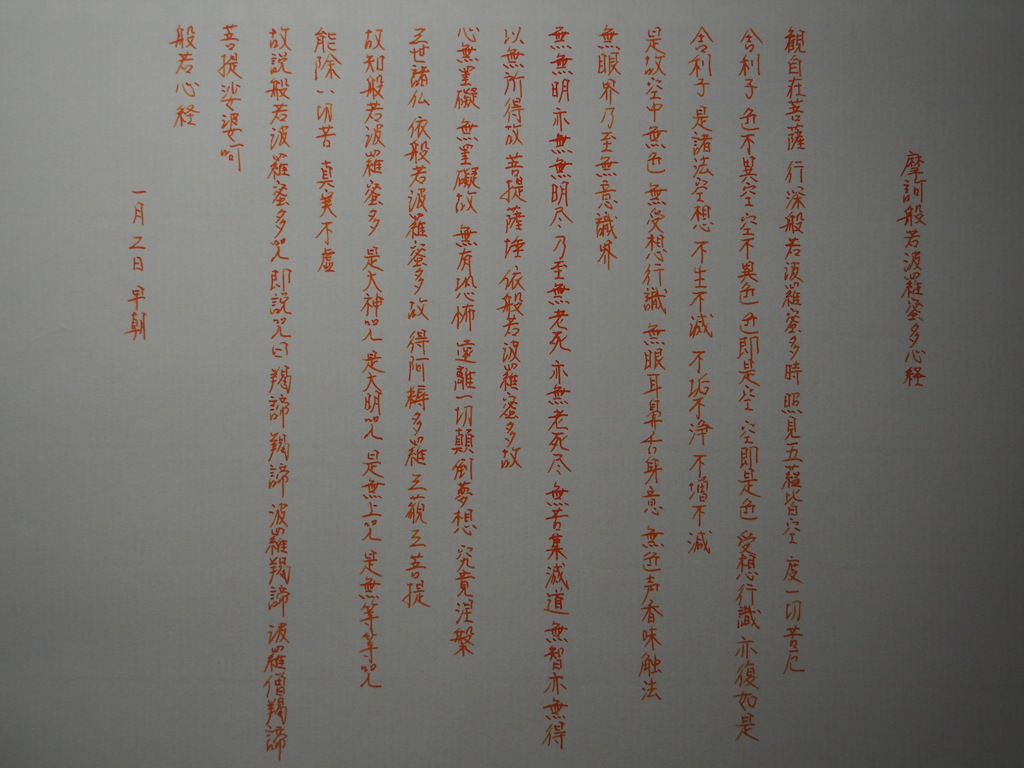 摩訶般若波羅蜜多心経
観自在菩薩 行深般若波羅蜜多時 照見五蘊皆空 度一切苦厄
舎利子 色不異空 空不異色 色即是空 空即是色 受想行識 亦復如是
舎利子 是諸法空想 不生不滅 不垢不浄 不増不減
是故空中無色 無受想行識 無眼耳鼻舌身意 無色声香味触法
無眼界乃至無意識界
無無明亦無無明尽 乃至無老死 亦無老死尽 無苦集滅道 無智亦無得
以無所得故 菩提薩埵 依般若波羅蜜多故
心無罣礙 無罣礙故 無有恐怖 遠離一切顛倒夢想 究竟涅槃
三世諸仏 依般若波羅蜜多故 得阿耨多羅三藐三菩提
故知般若波羅蜜多 是大神咒 是大明咒 是無上咒 是無等等咒
能除一切苦 真実不虚
故説般若波羅蜜多咒 即説咒曰 羯諦 羯諦 波羅羯諦 波羅僧羯諦
菩提娑婆呵
般若心経
一月二日 早朝